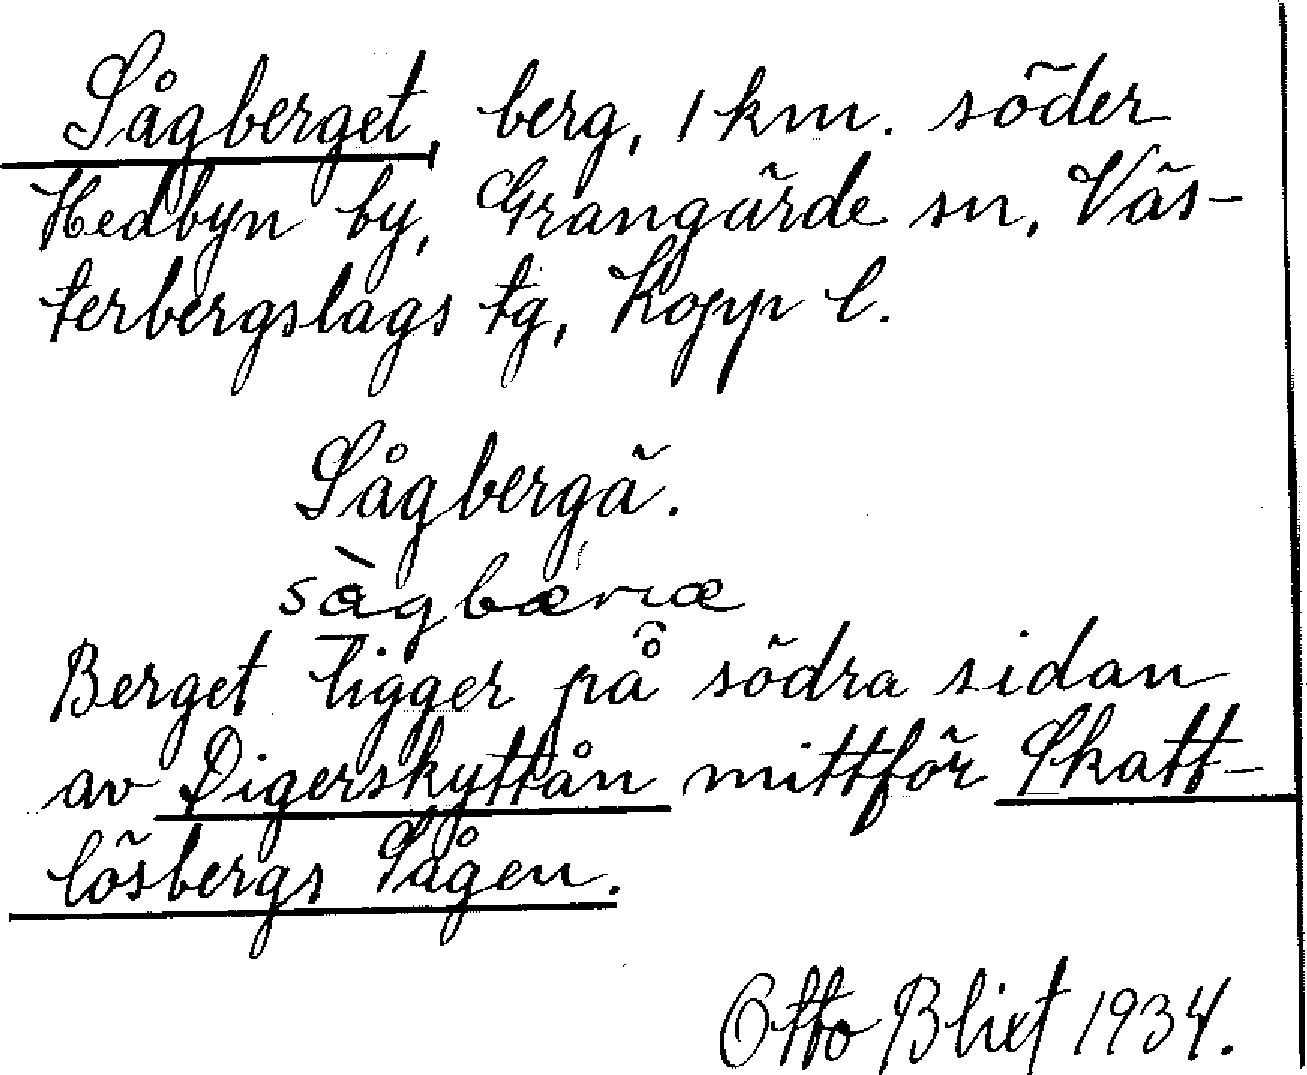 Sågberget, berg, 1 km. söder
Hedbyn by, Grangärde sn, Väs-
terbergslags tg, Kopp l.
Sågbergä.
sàgbæriæ
Berget ligger på södra sidan
av Digerskyttån mittför Skatt-
lösbergs Sågen.
Otto Blixt 1934.